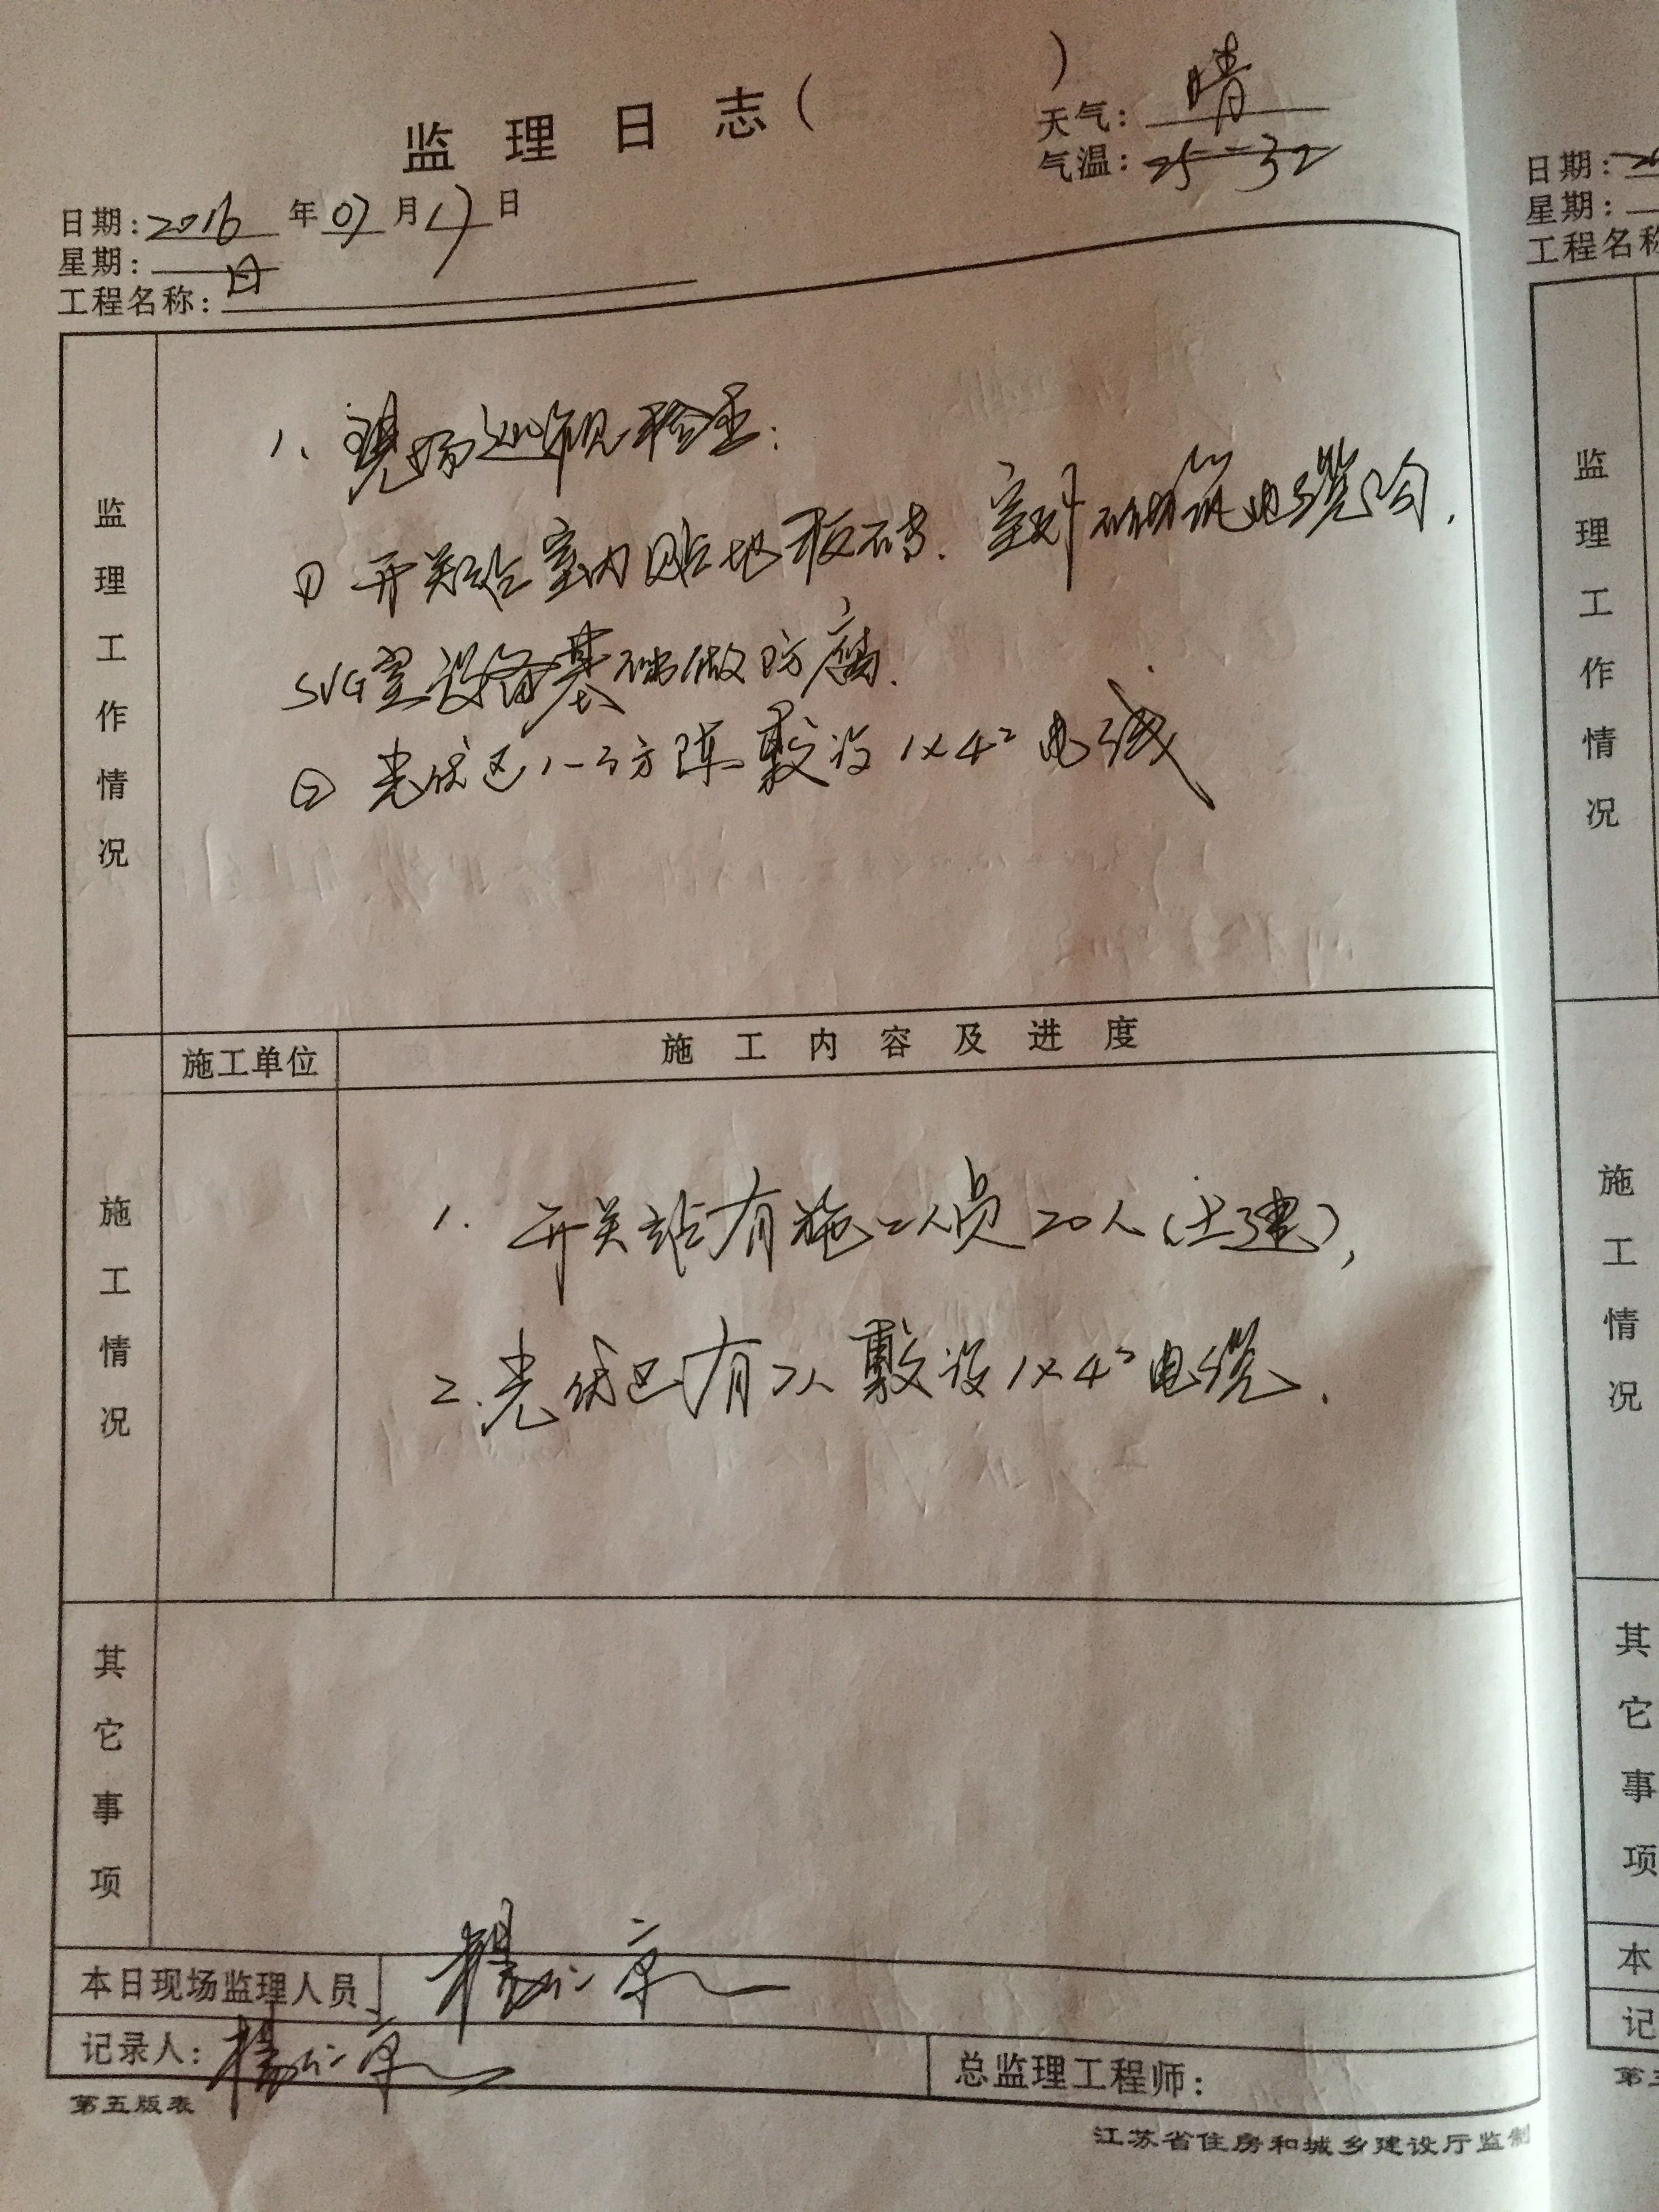 监理日志( )
天气: 晴
气温: 25-32
日期: 2016 年 07 月 17 日
星期: 日
工程名称:
监理工作情况
1、现场巡视检查:
① 开关站室内贴地板砖、室外砌筑电缆沟,
SVG室设备基础做防腐.
② 光伏区1-3方阵敷设1×4² 电线
施工单位
施工内容及进度
施工情况
1. 开关站有施工人员20人(土建),
2. 光伏区有7人敷设1×4² 电缆.
其它事项
本日现场监理人员
记录人:
总监理工程师:
第五版表
江苏省住房和城乡建设厅监制
日期:
星期:
工程名称
监理工作情况
施工情况
其它事项
本
记